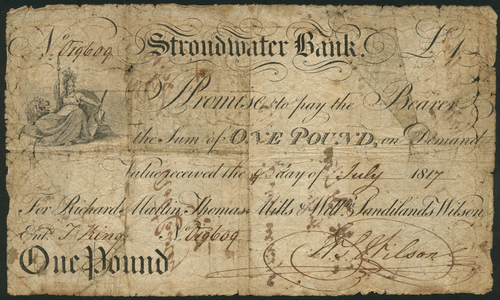 No. U9609 Stroudwater Bank. £1
I Promise to pay the Bearer
the Sum of ONE POUND, on Demand
Value received the day of July 1817
For Richard Martin, Thomas Mills & Willm Sandilands Wilson
Entd. T King No U9609
One Pound W S Wilson